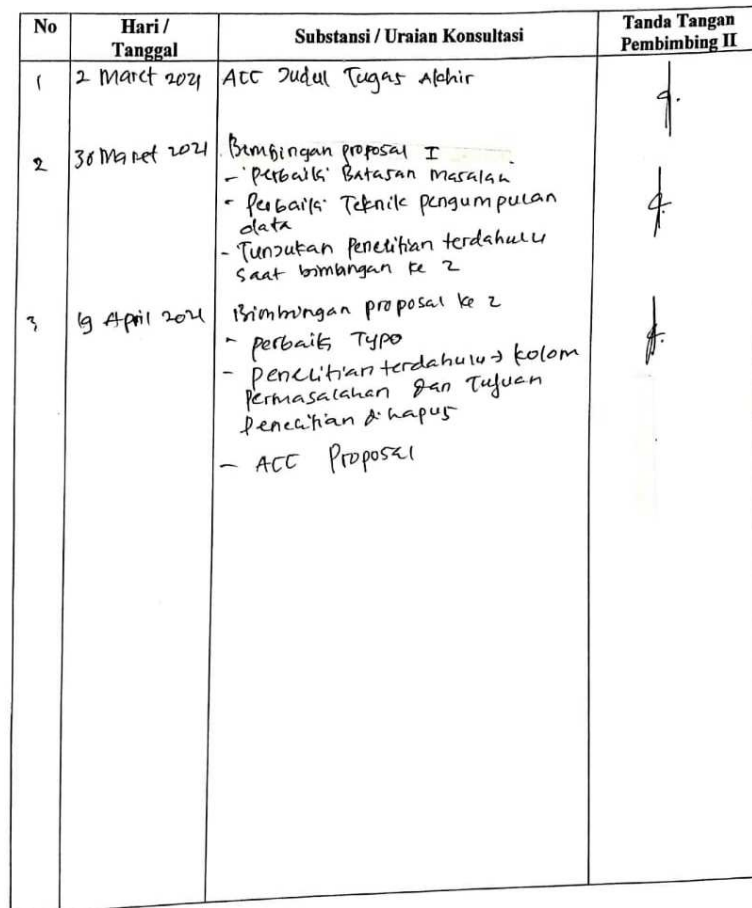 No
Hari /
Tanggal
Substansi / Uraian Konsultasi
Tanda Tangan
Pembimbing II
1
2 Maret 2021
ACC Judul Tugas Akhir
2
30 Maret 2021
Bimbingan proposal I
- Perbaiki Batasan Masalah
- Perbaiki Teknik pengumpulan
data
- Tunjukan Penelitian terdahulu
saat bimbingan ke 2
3
19 April 2021
Bimbingan proposal ke 2
- perbaiki Typo
- penelitian terdahulu → kolom
permasalahan dan Tujuan
penelitian dihapus
- ACC Proposal